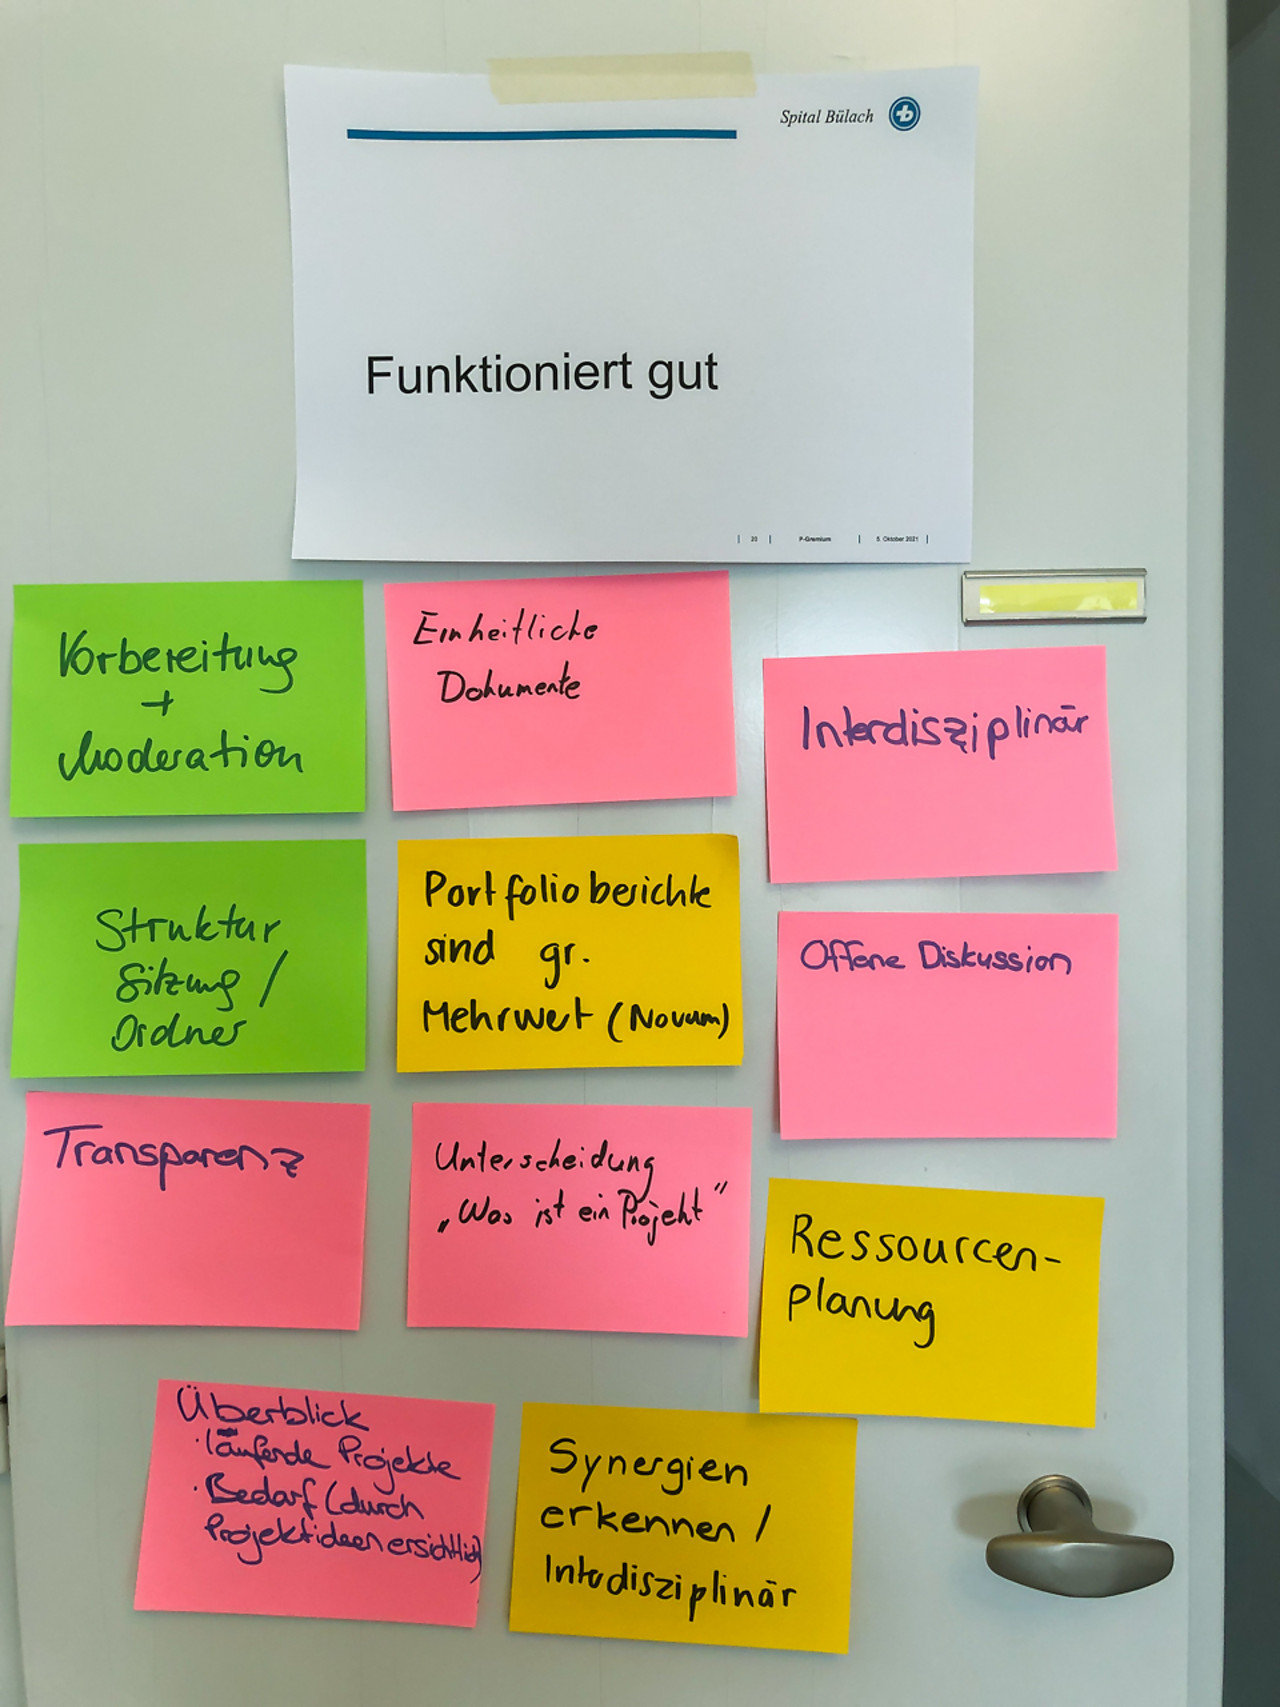 Spital Bülach
Funktioniert gut
| 20 | P-Gremium | 5. Oktober 2021 |
Vorbereitung
+
Moderation
Einheitliche
Dokumente
Interdisziplinär
Struktur
Sitzung /
Ordner
Portfolioberichte
sind gr.
Mehrwert (Novum)
Offene Diskussion
Transparenz
Unterscheidung
„Was ist ein Projekt"
Ressourcen-
planung
Überblick
· läuferde Projekte
· Bedarf (durch
Projektideen ersichtlich)
Synergien
erkennen /
Interdisziplinär